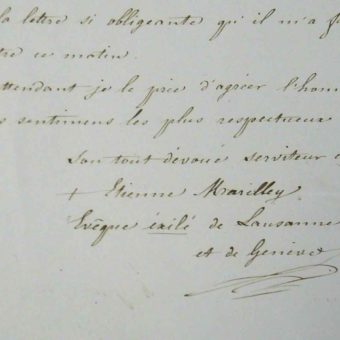 la lettre si obligeante qu'il m'a f
ce matin.
attendant je le prie d'agréer l'hom
sentimens les plus respectueux
Son tout dévoué serviteur
+ Etienne Marilley
Evêque éxilé de Lausanne
et de Genève